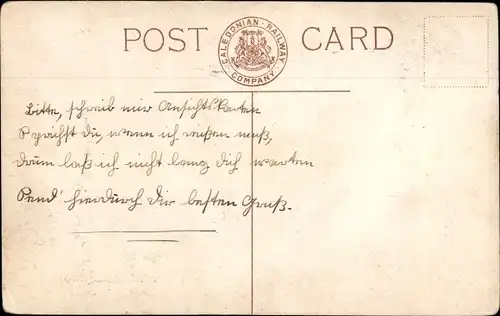 POST CARD
CALEDONIAN · RAILWAY · COMPANY ·
Bitte, schreib mir Ansichtskarten
Sprichst Du, wenn ich reißen muß,
Drum laß ich nicht lang Dich warten
Send' hierdurch Dir besten Gruß.